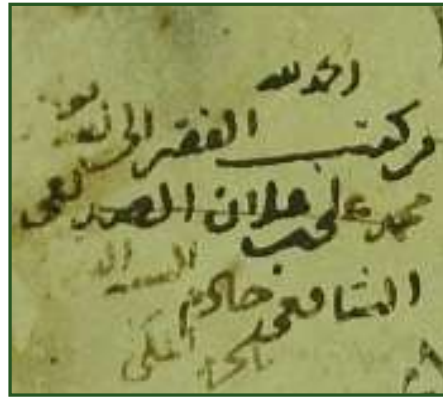 الحمد لله
من كتب الفقير الى الله تعالى
محمد علي بن علان الصديقي
الشافعي خادم السنة
بالحرم المكي